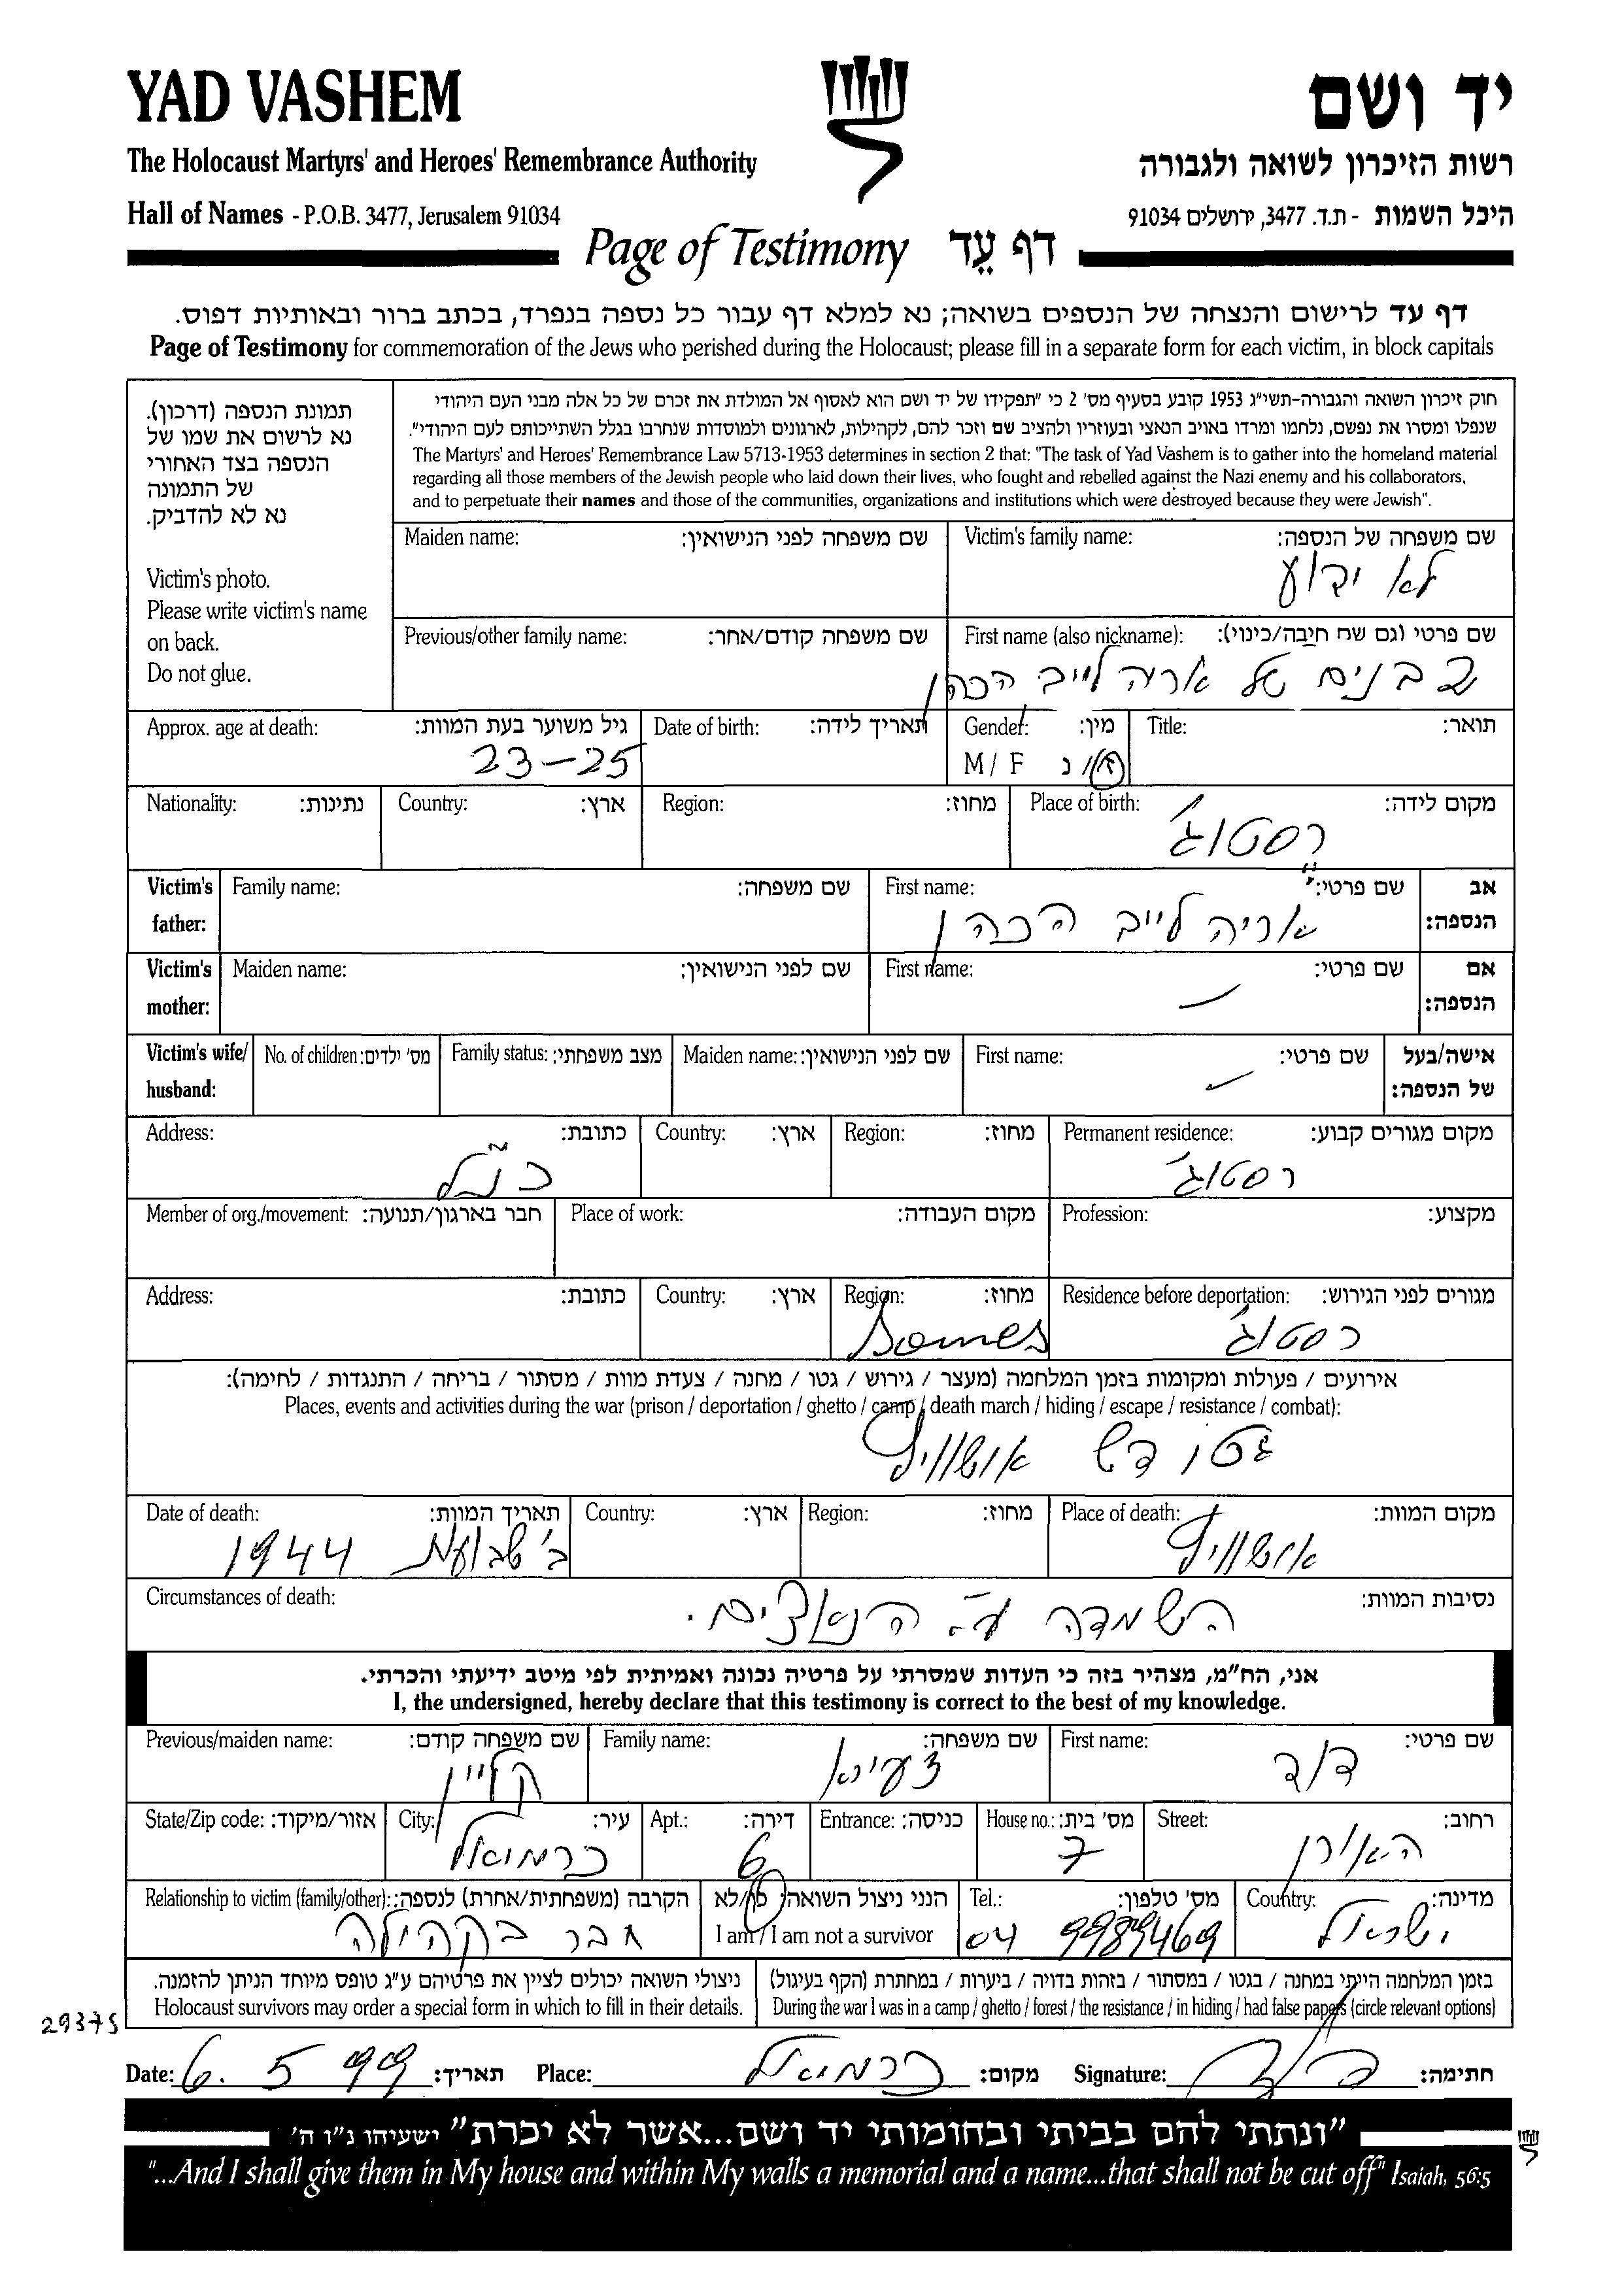 YAD VASHEM
יד ושם
The Holocaust Martyrs' and Heroes' Remembrance Authority
רשות הזיכרון לשואה ולגבורה
Hall of Names - P.O.B. 3477, Jerusalem 91034
היכל השמות - ת.ד. 3477, ירושלים 91034
Page of Testimony דף עֵד
דף עד לרישום והנצחה של הנספים בשואה; נא למלא דף עבור כל נספה בנפרד, בכתב ברור ובאותיות דפוס.
Page of Testimony for commemoration of the Jews who perished during the Holocaust; please fill in a separate form for each victim, in block capitals
תמונת הנספה (דרכון).
נא לרשום את שמו של
הנספה בצד האחורי
של התמונה
נא לא להדביק.
Victim's photo.
Please write victim's name
on back.
Do not glue.
חוק זיכרון השואה והגבורה-תשי"ג 1953 קובע בסעיף מס' 2 כי "תפקידו של יד ושם הוא לאסוף אל המולדת את זכרם של כל אלה מבני העם היהודי
שנפלו ומסרו את נפשם, נלחמו ומרדו באויב הנאצי ובעוזריו ולהציב שם וזכר להם, לקהילות, לארגונים ולמוסדות שנחרבו בגלל השתייכותם לעם היהודי".
The Martyrs' and Heroes' Remembrance Law 5713-1953 determines in section 2 that: "The task of Yad Vashem is to gather into the homeland material
regarding all those members of the Jewish people who laid down their lives, who fought and rebelled against the Nazi enemy and his collaborators,
and to perpetuate their names and those of the communities, organizations and institutions which were destroyed because they were Jewish".
Maiden name: שם משפחה לפני הנישואין:
Victim's family name: שם משפחה של הנספה:
לא ידוע
Previous/other family name: שם משפחה קודם/אחר:
First name (also nickname): שם פרטי (גם שם חיבה/כינוי):
2 בנים של אריה לייב הכהן
Approx. age at death: גיל משוער בעת המוות:
23-25
Date of birth: תאריך לידה:
Gender: מין:
M / F ז/נ
Title: תואר:
Nationality: נתינות:
Country: ארץ:
Region: מחוז:
Place of birth: מקום לידה:
רסטוג'
Victim's father:
Family name: שם משפחה:
First name: שם פרטי:
אב הנספה:
אריה לייב הכהן
Victim's mother:
Maiden name: שם לפני הנישואין:
First name: שם פרטי:
אם הנספה:
Victim's wife/ husband:
No. of children: מס' ילדים:
Family status: מצב משפחתי:
Maiden name: שם לפני הנישואין:
First name: שם פרטי:
אישה/בעל של הנספה:
Address: כתובת:
כנ"ל
Country: ארץ:
Region: מחוז:
Permanent residence: מקום מגורים קבוע:
רסטוג'
Member of org./movement: חבר בארגון/תנועה:
Place of work: מקום העבודה:
Profession: מקצוע:
Address: כתובת:
Country: ארץ:
Region: מחוז:
Somes
Residence before deportation: מגורים לפני הגירוש:
רסטוג'
אירועים / פעולות ומקומות בזמן המלחמה (מעצר / גירוש / גטו / מחנה / צעדת מוות / מסתור / בריחה / התנגדות / לחימה):
Places, events and activities during the war (prison / deportation / ghetto / camp / death march / hiding / escape / resistance / combat):
גטו דש אושוויץ
Date of death: תאריך המוות:
ב' שבועות 1944
Country: ארץ:
Region: מחוז:
Place of death: מקום המוות:
אושוויץ
Circumstances of death: נסיבות המוות:
השמדה ע"י הנאצים.
אני, הח"מ, מצהיר בזה כי העדות שמסרתי על פרטיה נכונה ואמיתית לפי מיטב ידיעתי והכרתי.
I, the undersigned, hereby declare that this testimony is correct to the best of my knowledge.
Previous/maiden name: שם משפחה קודם:
קליין
Family name: שם משפחה:
First name: שם פרטי:
דוד
State/Zip code: אזור/מיקוד:
City: עיר:
כרמיאל
Apt.: דירה:
6
Entrance: כניסה:
House no.: מס' בית:
7
Street: רחוב:
האורן
Relationship to victim (family/other): הקרבה (משפחתית/אחרת) לנספה:
חבר בקהילה
הנני ניצול השואה: כן/לא
I am / I am not a survivor
Tel.: מס' טלפון:
04 9989469
Country: מדינה:
ישראל
ניצולי השואה יכולים לציין את פרטיהם ע"ג טופס מיוחד הניתן להזמנה.
Holocaust survivors may order a special form in which to fill in their details.
בזמן המלחמה הייתי במחנה / בגטו / במסתור / בזהות בדויה / ביערות / במחתרת (הקף בעיגול)
During the war I was in a camp / ghetto / forest / the resistance / in hiding / had false papers (circle relevant options)
29375
Date: 6. 5 99 תאריך: Place: כרמיאל מקום: Signature: חתימה:
"ונתתי להם בביתי ובחומותי יד ושם...אשר לא יכרת" ישעיהו נ"ו ה'
"...And I shall give them in My house and within My walls a memorial and a name...that shall not be cut off" Isaiah, 56:5